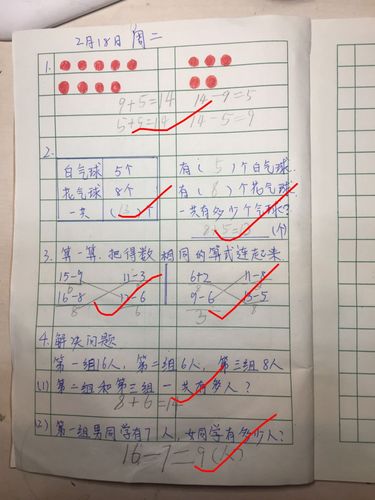 2月18日 周二
1.
9+5=14 14-9=5
5+9=14 14-5=9
2.
白气球 5个 有( 5 )个白气球.
花气球 8个 有( 8 )个花气球.
一共 (13)个 一共有多少个气球?
8+5=13 (个)
3. 算一算,把得数相同的算式连起来.
15-9 11-3 6+2 11-8
16-8 12-6 9-6 13-5
8 6 3 8
4.解决问题
第一组16人, 第二组6人, 第三组8人
(1) 第二组和第三组一共有多少人?
8+6=14
(2) 第一组男同学有7人,女同学有多少人?
16-7=9(人)